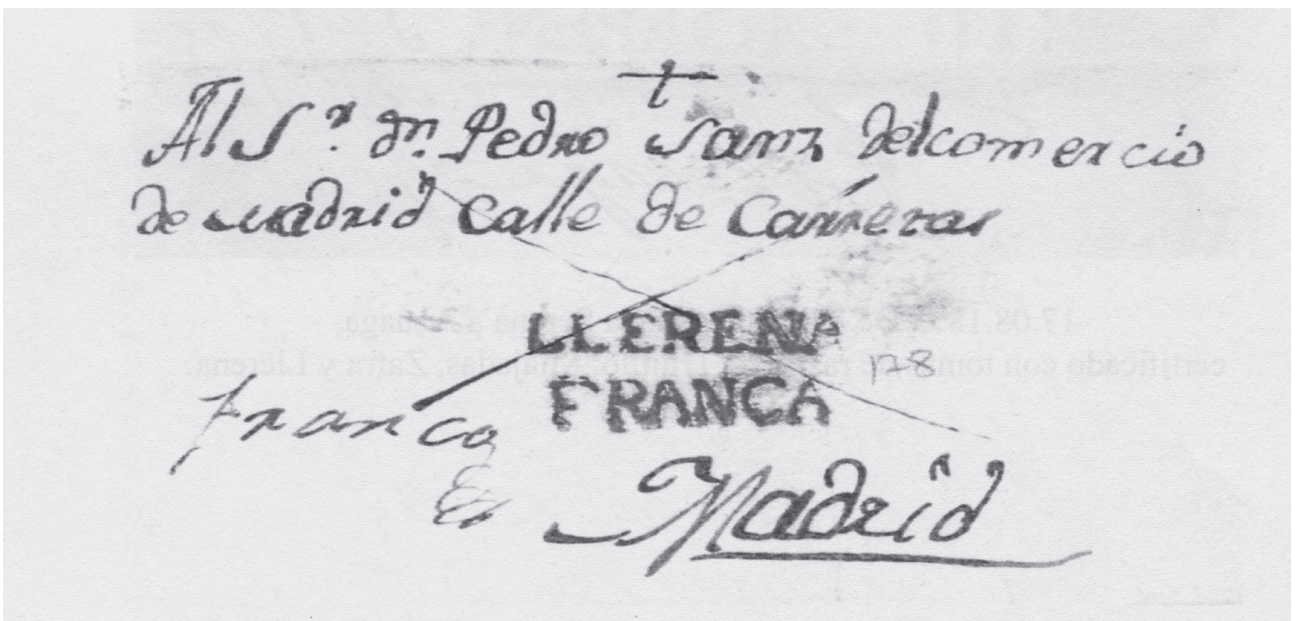 †
Al Sr. dn. Pedro Sanz del comercio
de Madrid Calle de Carreras
LLERENA
128
FRANCA
franca
Madrid